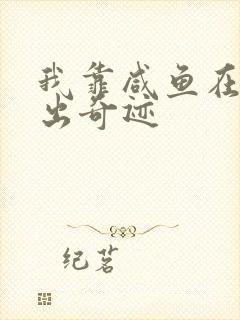 我靠咸鱼在
出奇迹
纪茗